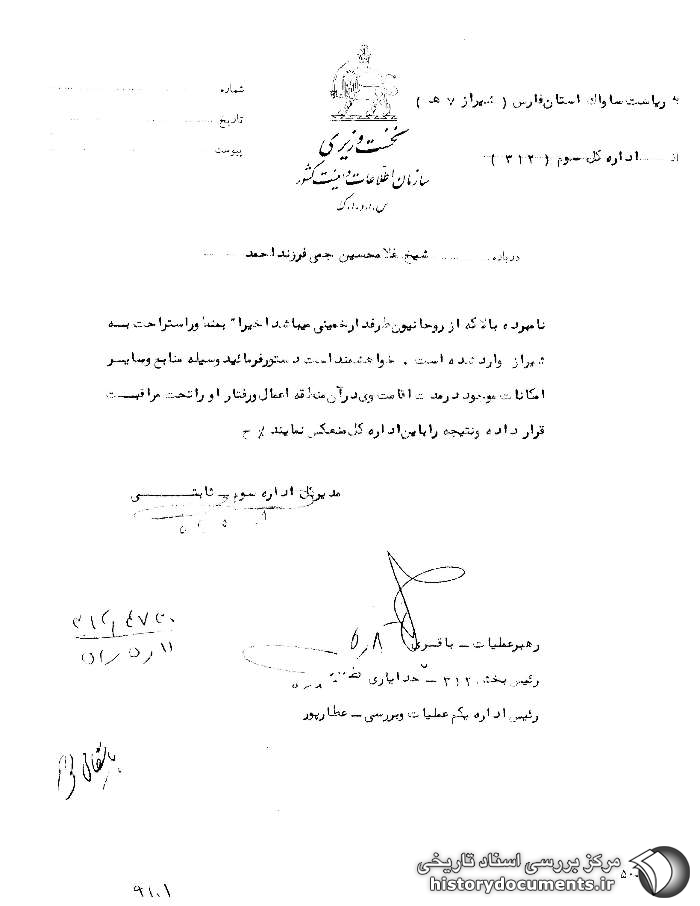 به ریاست ساواک استان فارس ( شیراز ۷ هـ )
از اداره کل سوم ( ۳۱۲ )
شماره
تاریخ
پیوست
نخست وزیری
سازمان اطلاعات و امنیت کشور
س.ا.و.ا.ک
درباره شیخ غلامحسین جمی فرزند احمد
نامبرده بالا که از روحانیون طرفدار خمینی میباشد اخیرا" بمنظور استراحت به
شیراز وارد شده است . خواهشمند است دستور فرمائید وسیله منابع و سایر
امکانات موجود در مدت اقامت وی در آن منطقه اعمال و رفتار او را تحت مراقبت
قرار داده و نتیجه را باین اداره کل منعکس نمایند ٪ ح
مدیر کل اداره سوم ـ ثابتی
۳۱۲٫۴۷۳۰
۵۱٫۵٫۱۱
رهبر عملیات ـ باقری ۵٫۸
رئیس بخش ۳۱۲ ـ خدایاری
رئیس اداره یکم عملیات و بررسی ـ عطارپور
۹۱.۱
۵۰
مرکز بررسی اسناد تاریخی
historydocuments.ir